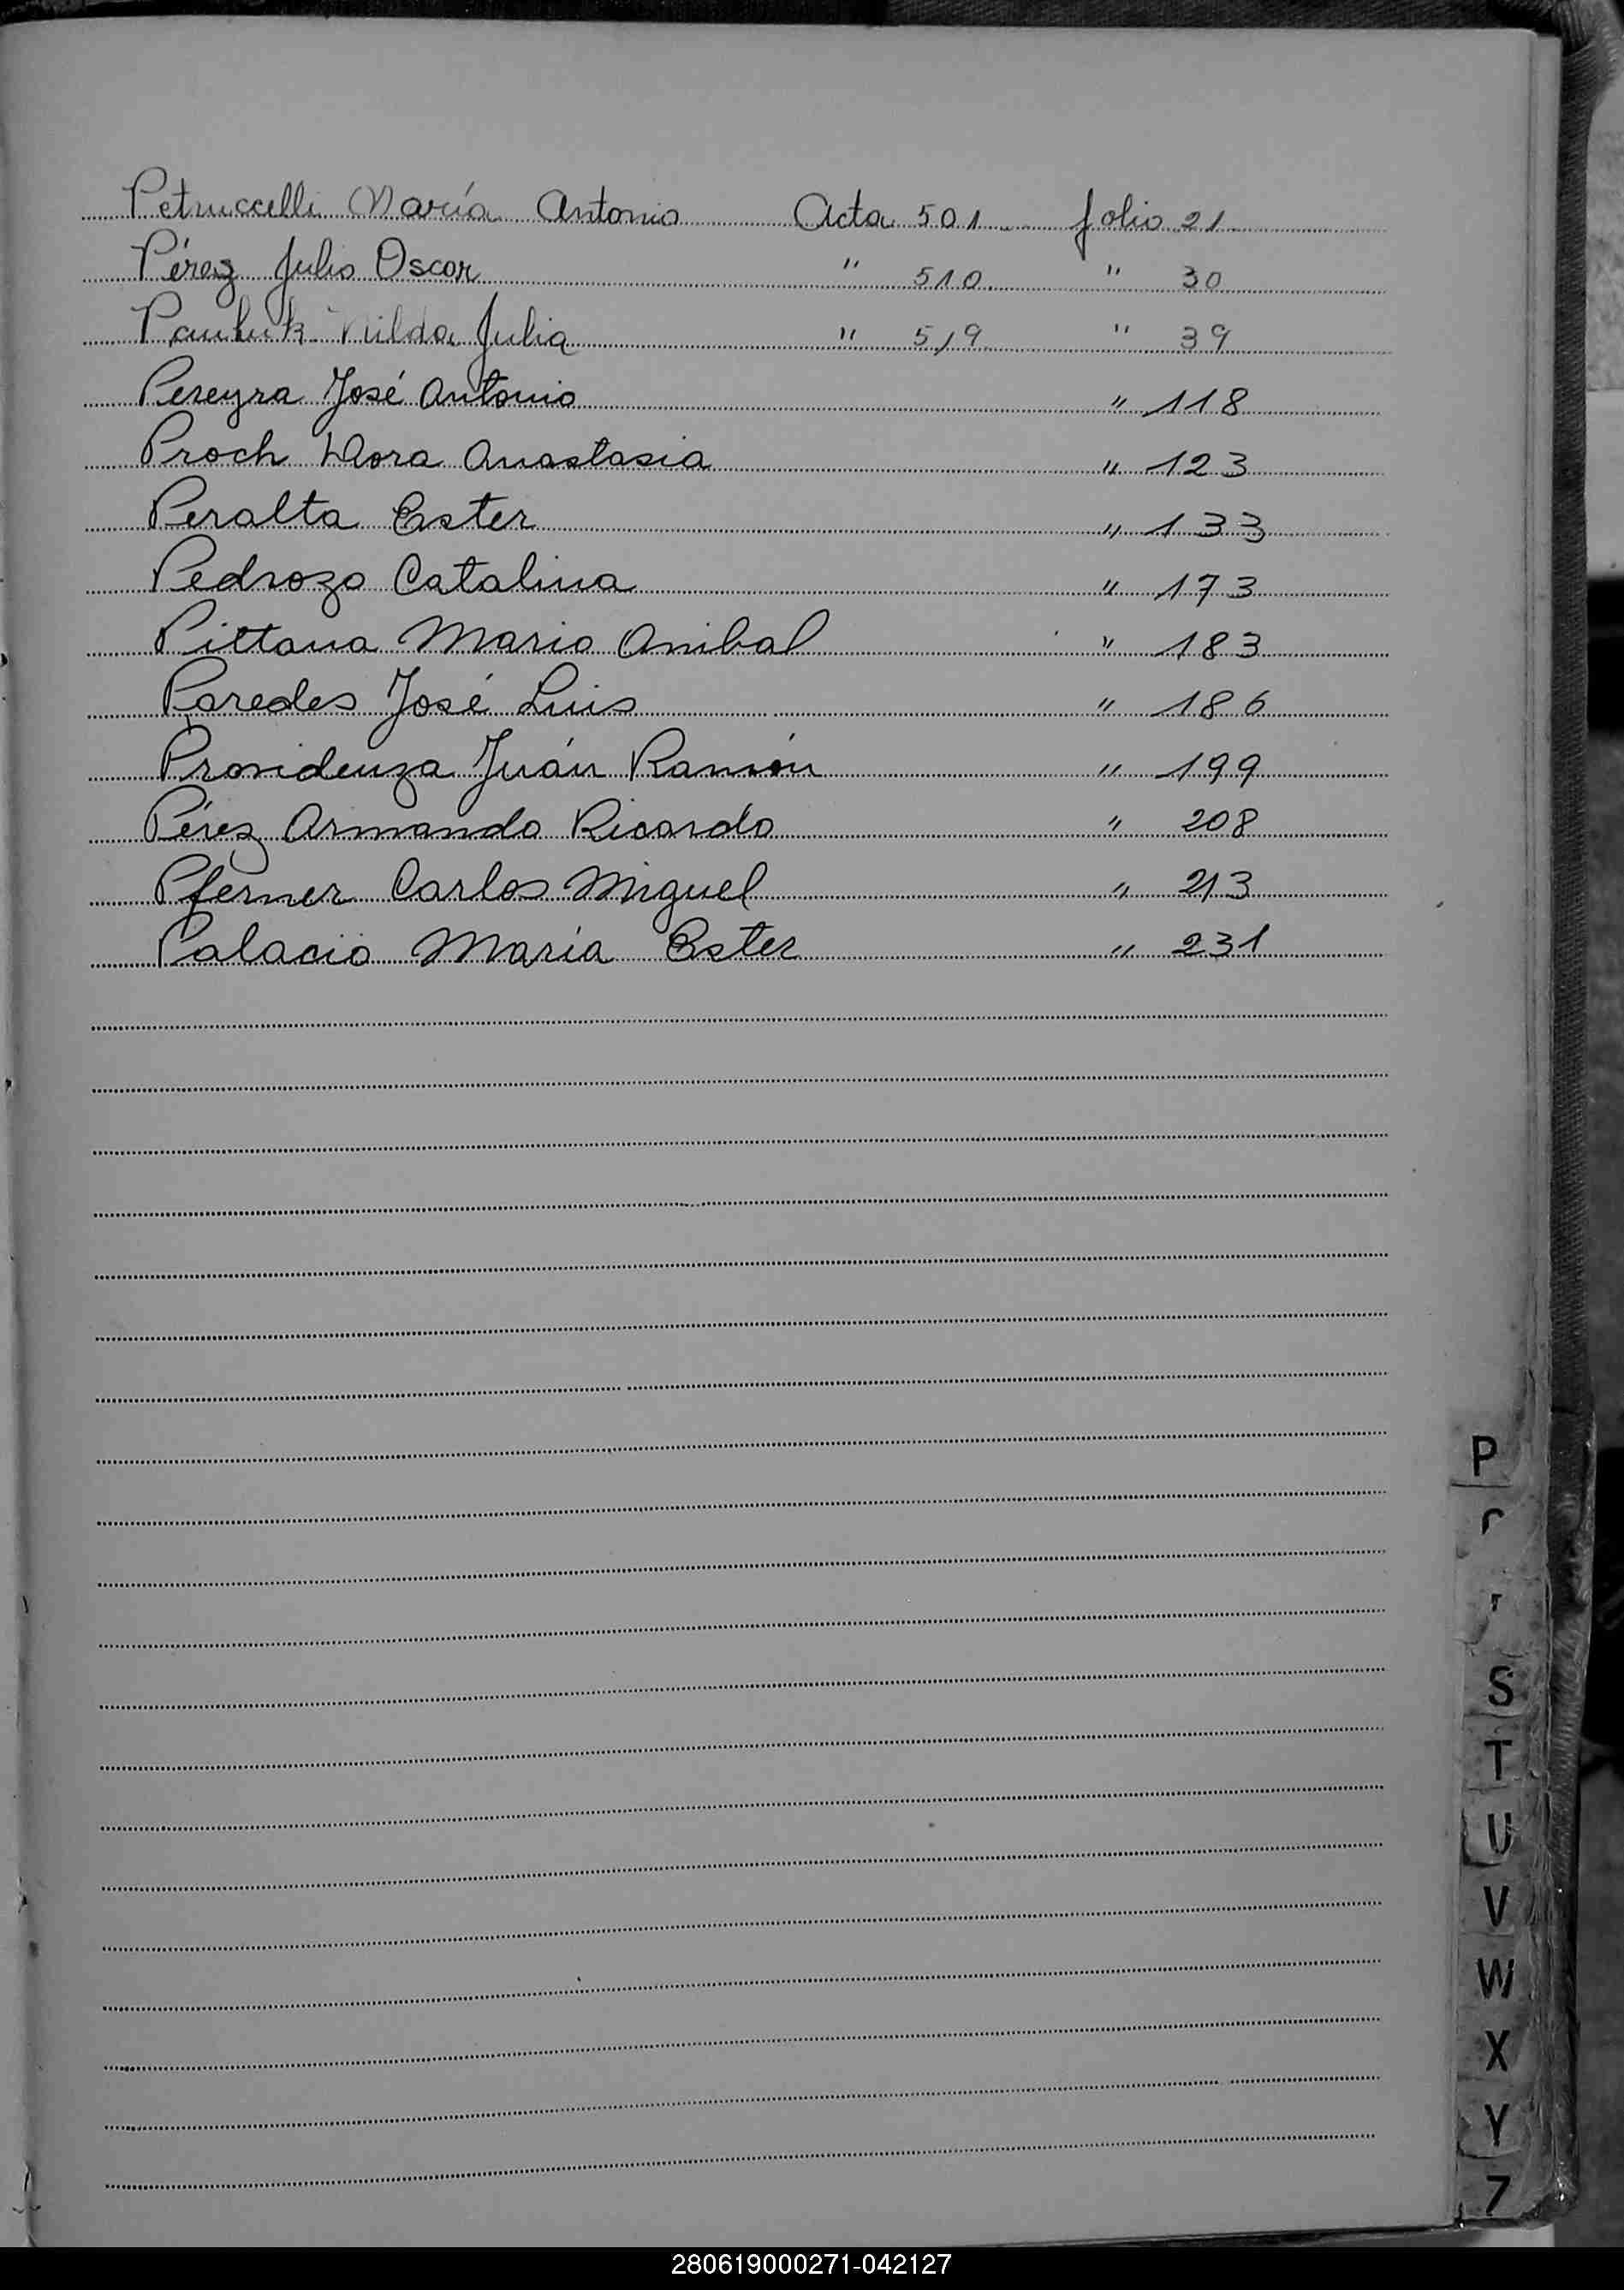 Petruccelli María Antonio Acta 501 folio 21
Pérez Julio Oscar " 510 " 30
Pauluk Nilda Julia " 519 " 39
Pereyra José Antonio " 118
Proch Dora Anastasia " 123
Peralta Ester " 133
Pedrozo Catalina " 173
Pittana Mario Anibal " 183
Paredes José Luis " 186
Prosidenza Juán Ramón " 199
Pérez Armando Ricardo " 208
Pferner Carlos Miguel " 213
Palacio María Ester " 231
P
S
T
U
V
W
X
Y
Z
280619000271-042127